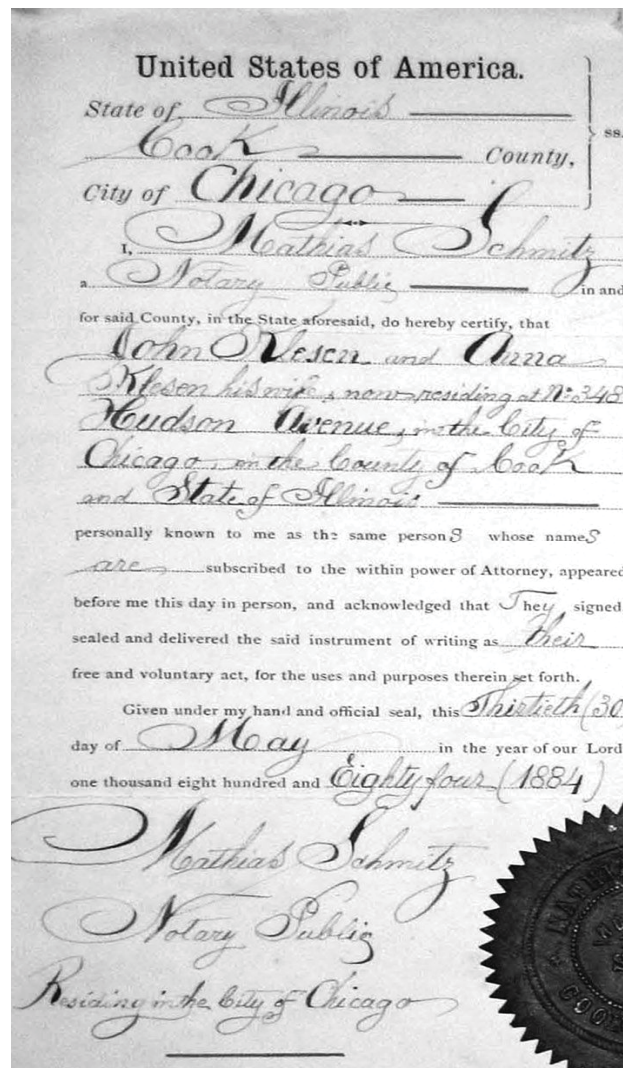 United States of America.
State of Illinois
ss.
Cook County,
City of Chicago
I, Mathias Schmitz
a Notary Public in and
for said County, in the State aforesaid, do hereby certify, that
John Klesen and Anna
Klesen his wife, now residing at No 348
Hudson Avenue, in the City of
Chicago, in the County of Cook
and State of Illinois
personally known to me as the same persons whose names
are subscribed to the within power of Attorney, appeared
before me this day in person, and acknowledged that They signed
sealed and delivered the said instrument of writing as their
free and voluntary act, for the uses and purposes therein set forth.
Given under my hand and official seal, this Thirtieth (30
day of May in the year of our Lord
one thousand eight hundred and Eighty four (1884)
Mathias Schmitz
Notary Public
Residing in the City of Chicago